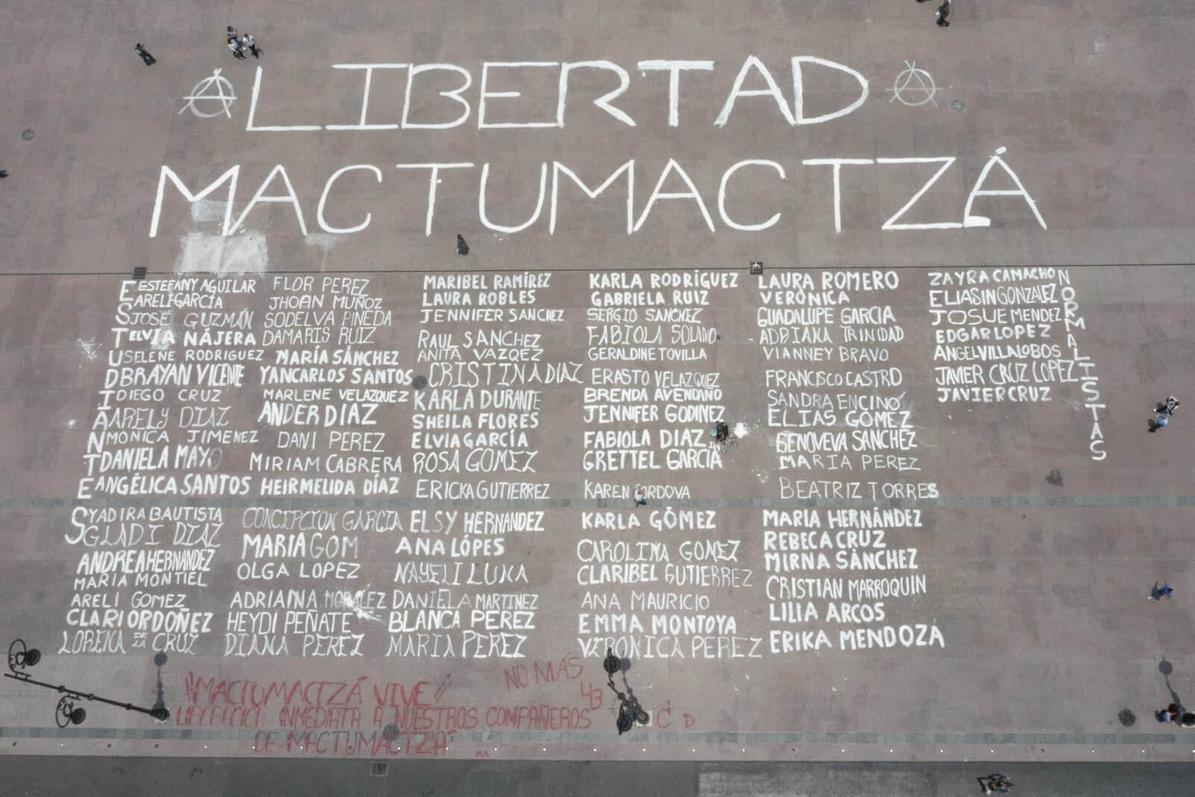 LIBERTAD
MACTUMACTZÁ
ESTUDIANTES
ESTEFANY AGUILAR
ARELI GARCÍA
JOSÉ GUZMÁN
ELVIA NÁJERA
SELENE RODRIGUEZ
BRAYAN VICENTE
DIEGO CRUZ
ARELY DIAZ
MONICA JIMENEZ
DANIELA MAYO
ANGÉLICA SANTOS
YADIRA BAUTISTA
GLADI DIAZ
ANDREA HERNANDEZ
MARIA MONTIEL
ARELI GOMEZ
CLARI ORDOÑEZ
LORENA DE LA CRUZ
FLOR PEREZ
JHOAN MUÑOZ
SODELVA PINEDA
DAMARIS RUIZ
MARÍA SÁNCHEZ
YANCARLOS SANTOS
MARLENE VELAZQUEZ
ANDER DIAZ
DANI PEREZ
MIRIAM CABRERA
HEIRMELIDA DÍAZ
CONCEPCION GARCIA
MARIA GOM
OLGA LOPEZ
ADRIANA
HEYDI PEÑATE
DIANA PEREZ
MARIBEL RAMÍREZ
LAURA ROBLES
JENNIFER SANCHEZ
RAUL SANCHEZ
ANITA VAZQEZ
CRISTINA DIAZ
KARLA DURANTE
SHEILA FLORES
ELVIA GARCÍA
ROSA GOMEZ
ERICKA GUTIERREZ
ELSY HERNANDEZ
ANA LÓPES
NAYELI LUNA
DANIELA MARTINEZ
BLANCA PEREZ
MARIA PEREZ
KARLA RODRÍGUEZ
GABRIELA RUIZ
SERGIO SANCHEZ
FABIOLA SOLANO
GERALDINE TOVILLA
ERASTO VELAZQUEZ
BRENDA AVENDAÑO
JENNIFER GODINEZ
FABIOLA DIAZ
GRETTEL GARCÍA
KAREN CORDOVA
KARLA GÓMEZ
CAROLINA GOMEZ
CLARIBEL GUTIERREZ
ANA MAURICIO
EMMA MONTOYA
VERONICA PEREZ
LAURA ROMERO
VERÓNICA
GUADALUPE GARCIA
ADRIANA TRINIDAD
VIANNEY BRAVO
FRANCISCO CASTRO
SANDRA ENCINO
ELIAS GÓMEZ
GENOVEVA SANCHEZ
MARIA PEREZ
BEATRIZ TORRES
MARIA HERNÁNDEZ
REBECA CRUZ
MIRNA SÀNCHEZ
CRISTIAN MARROQUIN
LILIA ARCOS
ERIKA MENDOZA
ZAYRA CAMACHO
ELIASIN GONZALEZ
JOSUE MENDEZ
EDGAR LOPEZ
ANGEL VILLALOBOS
JAVIER CRUZ LOPEZ
JAVIER CRUZ
NORMALISTAS
"MACTUMACTZÁ VIVE"
LIBERACIÓN INMEDIATA A NUESTROS COMPAÑEROS
DE MACTUMACTZÁ"
NO MAS
43